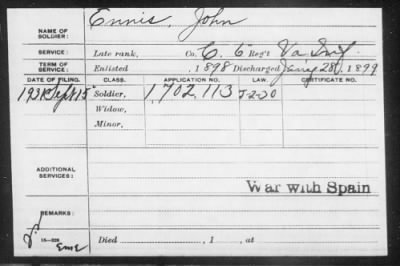 Ennis, John
NAME OF
SOLDIER:
SERVICE: Late rank, Co. C. 6 Reg't Va Inf.
TERM OF
SERVICE: Enlisted , 1898 Discharged Jan'y 28, 1899
DATE OF FILING. CLASS. APPLICATION NO. LAW. CERTIFICATE NO.
Sept 15 Soldier, 1,702,113
Widow,
Minor,
ADDITIONAL
SERVICES:
War with Spain
REMARKS:
Died , 1 , at